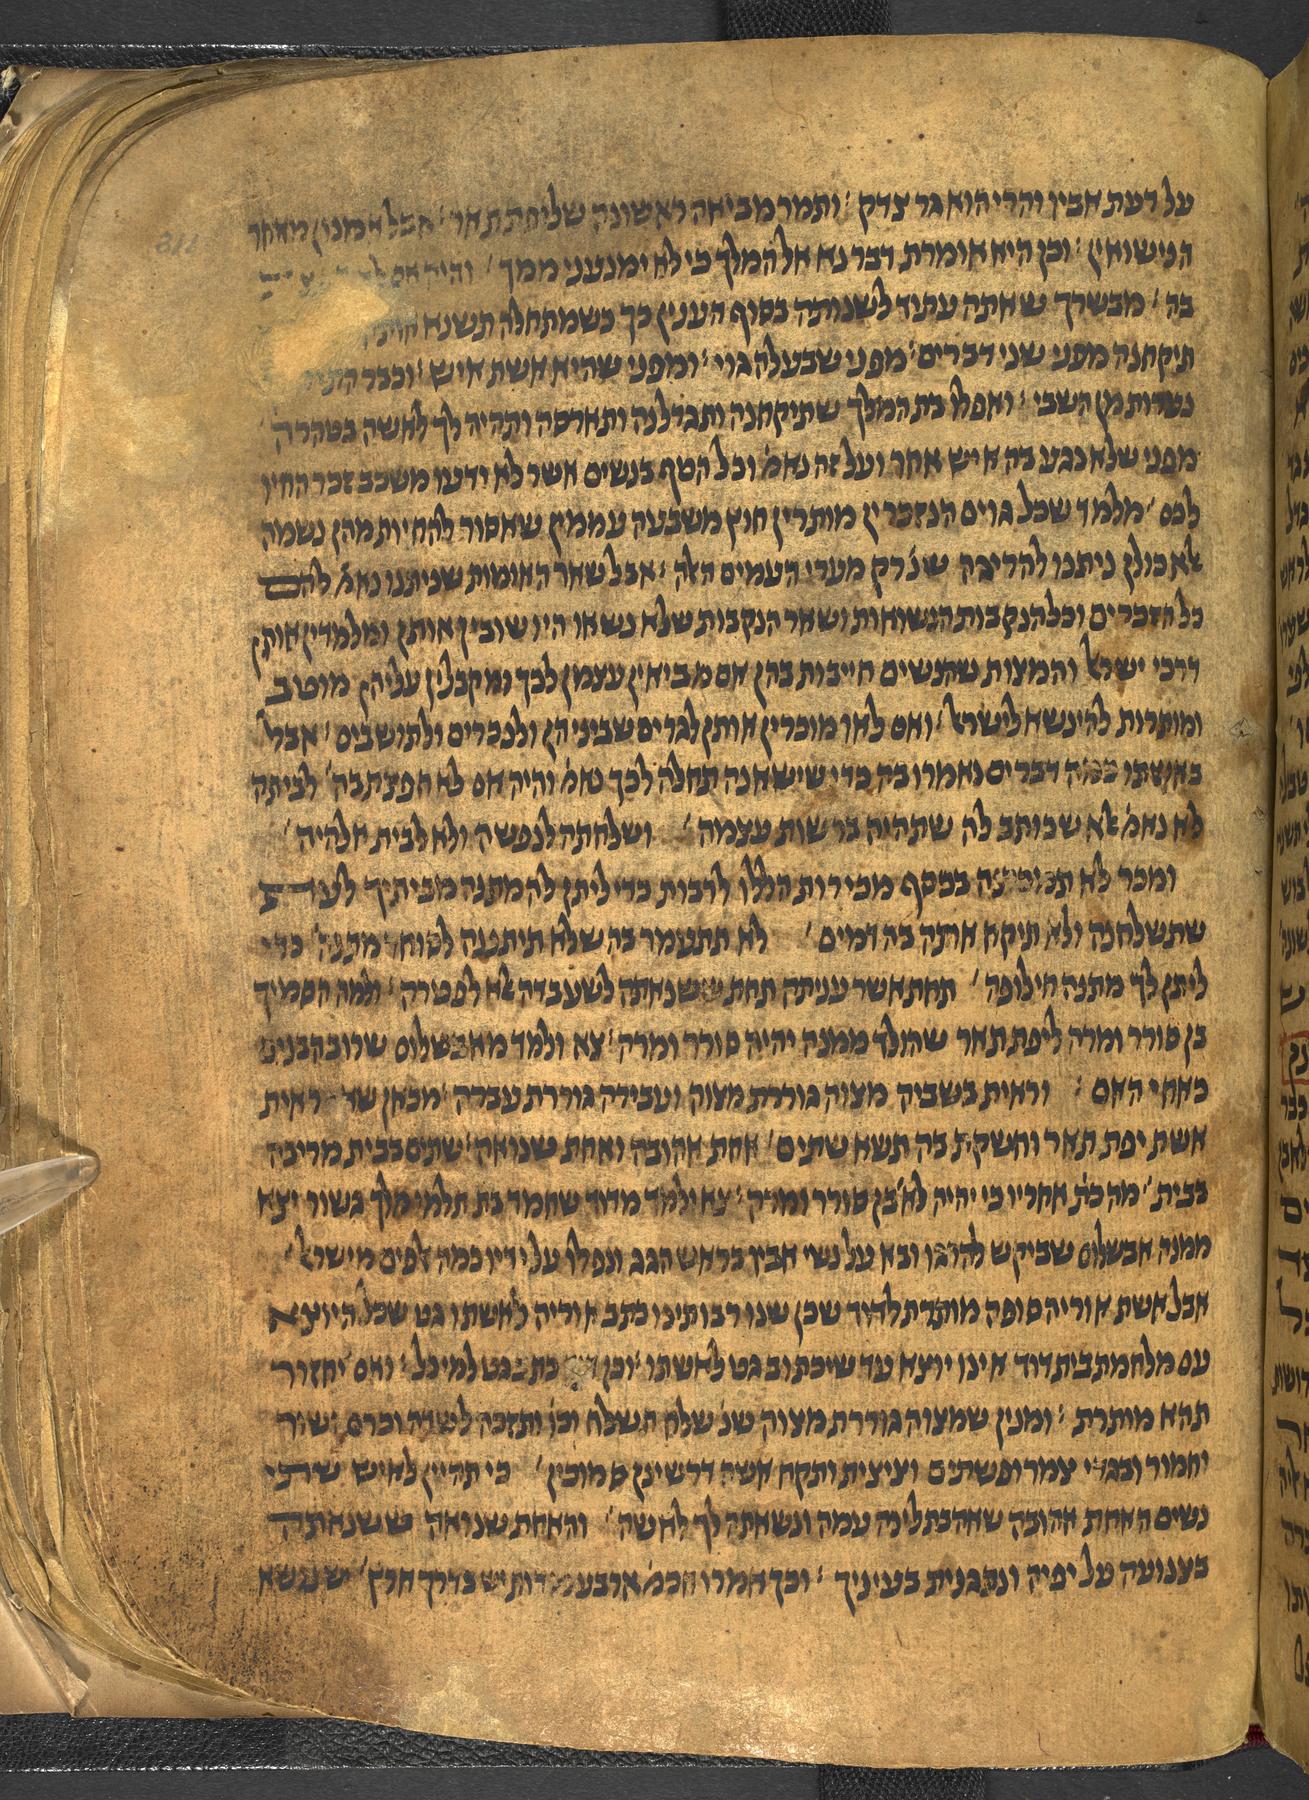 על דעת אביו והרי הוא גר צדק : ותמר מביאה ראשונה שליפת תאר : אבל אמנון מאחר
הנישואין : וכן היא אומרת דבר נא אל המלך כי לא ימנעני ממך ׳ והיה אם לא
בה ׳ מבשרך שאתה עתיד לשנותה בסוף הענין כך כשמתחלה תשנא אותה
תיקחנה מפני שני דברים ׳ מפני שבעלה גוי : ומפני שהיא אשת איש : וכבר התיר
נשרות מן השבי : ואפלו בת המלך שתיקחנה ותגדלנה ותארסה ותהיה לך לאשה בטהרה ׳
מפני שלא נגע בה איש אחר ועל זה נאמ׳ וכל הטף בנשים אשר לא ידעו משכב זכר החיו
לכם ׳ מלמד שכל גוים הנזכרין מותרין חוץ משבעה עממין שאסור להחיות מהן נשמה
אלא כולן ניתנו להריגה שנ׳ רק מערי העמים האלה : אבל שאר האומות שניתנו נאמ׳ להם
כל הזכרים וכל הנקבות הנשואות ושאר הנקבות שלא נשאו היו שובין אותן ומלמדין אותן
דרכי ישראל והמצות שהנשים חייבות בהן אם מביאין עצמן לכך ומקבלין עליהן מוטב
ומותרות להינשא לישראל : ואם לאו מוכרין אותן לגרים שביניהן ולנכרים ולתושבים : אבל
באשתו כמה דברים נאמרו בה כדי שישאנה תחלה לכך נאמ׳ והיה אם לא חפצת בה ׳ לביתה
לא נאמ׳ אלא שכותב לה שתהיה ברשות עצמה ׳ ושלחתה לנפשה ולא לבית אלהיה ׳
ומכר לא תמכרנה בכסף מכירות הללו לרבות כדי ליתן לה מתנה מביתיך לעיר
שתשלחנה ולא תיקח אותה בה דמים ׳ לא תתעמר בה שלא תיתננה לסוחר מתנה ׳ כדי
ליתן לך מתנה חילופה ׳ תחת אשר עניתה תחת ששנאתה לשעבדה אלא לפטורה : ולמה הסמיך
בן סורר ומרה ליפת תאר שהולד ממנה יהיה סורר ומרה : צא ולמד מאבשלום שרוב הבנים
כאחי האם : וראית בשביה מצוה גוררת מצוה ועבירה גוררת עברה : מכאן שנ׳ וראית
אשת יפת תאר וחשקת בה תשא שתים ׳ אחת אהובה ואחת שנואה : שתים בבית מריבה
בבית ׳ מה כת׳ אחריו כי יהיה לאיש בן סורר ומורה : צא ולמד מדוד שחמד בת תלמי מלך גשור יצא
ממנה אבשלום שביקש להרגו ובא על נשי אביו בראש הגג ונפלו על ידיו כמה אלפים מישראל ׳
אבל אשת אוריה סופה מותרת לדוד שכן שנו רבותינו כתב אוריה לאשתו גט שכל היוצא
עם מלחמת בית דוד אינו יוצא עד שיכתוב גט לאשתו : וכן דוד כתב גט למיכל : ואם יחזור
תהא מותרת : ומנין שמצוה גוררת מצוה שנ׳ שלח תשלח וכו׳ ותזכה לשדה וכרם ושור
וחמור ובגדי צמר ופשתים וציצית ותקח אשה דרשינן סמוכין ׳ כי תהיין לאיש שתי
נשים האחת אהובה שאהבת לינה עמה ונשאתה לך לאשה ׳ והאחת שנואה ששנאתה
בצנועה על יפיה ונתגנית בעיניך : וכך אמרו חכמ׳ ארבע מדות יש בדרך ארץ ׳ שנשא